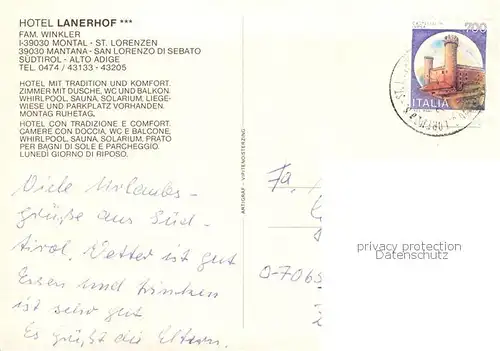 HOTEL LANERHOF ***
FAM. WINKLER
I-39030 MONTAL - ST. LORENZEN
39030 MANTANA - SAN LORENZO DI SEBATO
SÜDTIROL - ALTO ADIGE
TEL. 0474 / 43133 - 43205
HOTEL MIT TRADITION UND KOMFORT.
ZIMMER MIT DUSCHE, WC UND BALKON.
WHIRLPOOL, SAUNA, SOLARIUM, LIEGE-
WIESE UND PARKPLATZ VORHANDEN.
MONTAG RUHETAG.
HOTEL CON TRADIZIONE E COMFORT.
CAMERE CON DOCCIA, WC E BALCONE,
WHIRLPOOL, SAUNA, SOLARIUM, PRATO
PER BAGNI DI SOLE E PARCHEGGIO.
LUNEDÌ GIORNO DI RIPOSO.
Viele Urlaubs-
grüße aus Süd-
tirol. Wetter ist gut
Essen und trinken
ist sehr gut
Es grüßt die Eltern.
700
ITALIA
Fa.
D-7065
privacy protection
DatenschutzAKPool